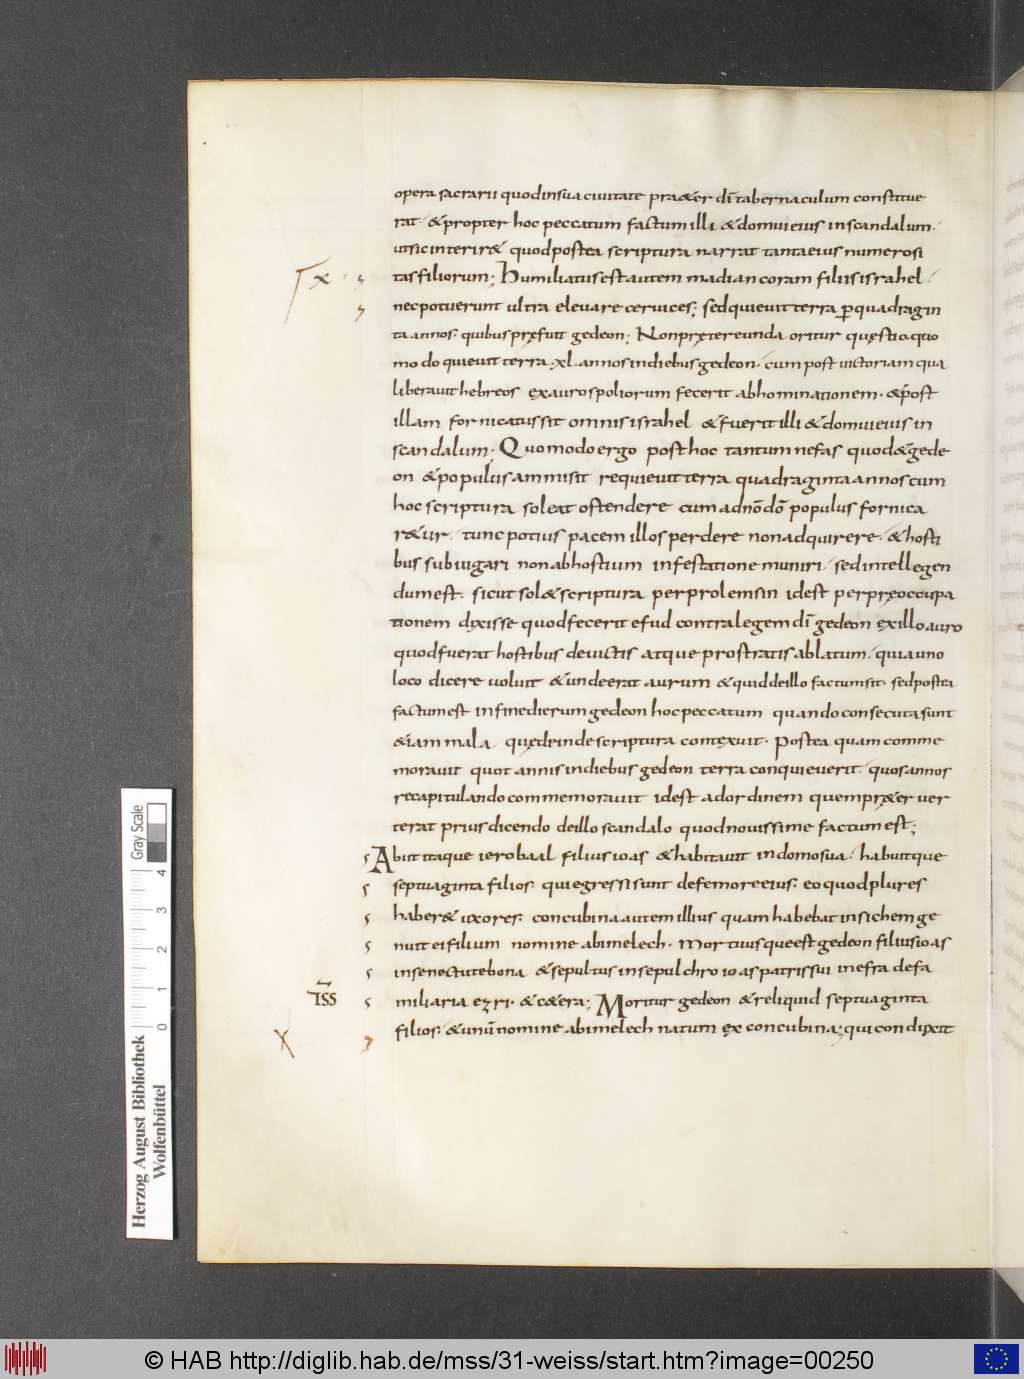 opera sacrarii quod in sua ciuitate pra&er dī tabernaculum constitue
rat · & propter hoc peccatum factum illi & domui eius in scandalum ·
ut sic interir& quod postea scriptura narrat tanta eius numerosi
x · tas filiorum ; Humiliatus est autem madian coram filiis israhel ·
nec potuerunt ultra eleuare ceruices ; sed quieuit terra ꝑ quadragin
ta annos · quibus pręfuit gedeon ; Non pręter eunda oritur quęstio · quo
modo quieuit terra · xl · annos in diebus gedeon · cum post uictoriam qua
liberauit hebreos ex auro spoliorum fecerit abhominationem · & post
illam fornicatus sit omnis israhel & fuerit illi & domui eius in
scandalum · Quomodo ergo post hoc tantum nefas quod & gede
on & populus ammisit requieuit terra quadraginta annos cum
hoc scriptura soleat ostendere cum ad nō dō populus fornica
r&ur · tunc potius pacem illos perdere non adquirere · & hosti
bus subiugari non ab hostium infestatione muniri · sed intellegen
dum est · sicut sol& scriptura per prolemsin id est per pręoccupa
tionem dixisse quod fecerit efud contra legem dī gedeon ex illo auro
quod fuerat hostibus deuictis atque prostratis ablatum · quia uno
loco dicere uoluit & unde erat aurum & quid de illo factum sit · sed postea
factum est in fine dierum gedeon hoc peccatum quando consecuta sunt
&iam mala quę deinde scriptura contexuit · Postea quam comme
morauit quot annis in diebus gedeon terra conquieuerit · quos annos
recapitulando commemorauit id est ad ordinem quem pręter uer
terat prius dicendo de illo scandalo quod nouissime factum est ;
Abiit itaque ierobaal filius ioas & habitauit in domo sua · habuitque
septuaginta filios · qui egressi sunt de femore eius · eo quod plures
haber& uxores · concubina autem illius quam habebat in sichem ge
nuit ei filium nomine abimelech · Mortuusque est gedeon filius ioas
in senectute bona & sepultus in sepulchro ioas patris sui in efra de fa
ISS miliaria ezri · & c&era ; Moritur gedeon & reliquid septuaginta
filios · & unū nomine abimelech natum ex concubina ; qui condixit
Gray Scale
0 1 2 3 4
Herzog August Bibliothek
Wolfenbüttel
© HAB http://diglib.hab.de/mss/31-weiss/start.htm?image=00250